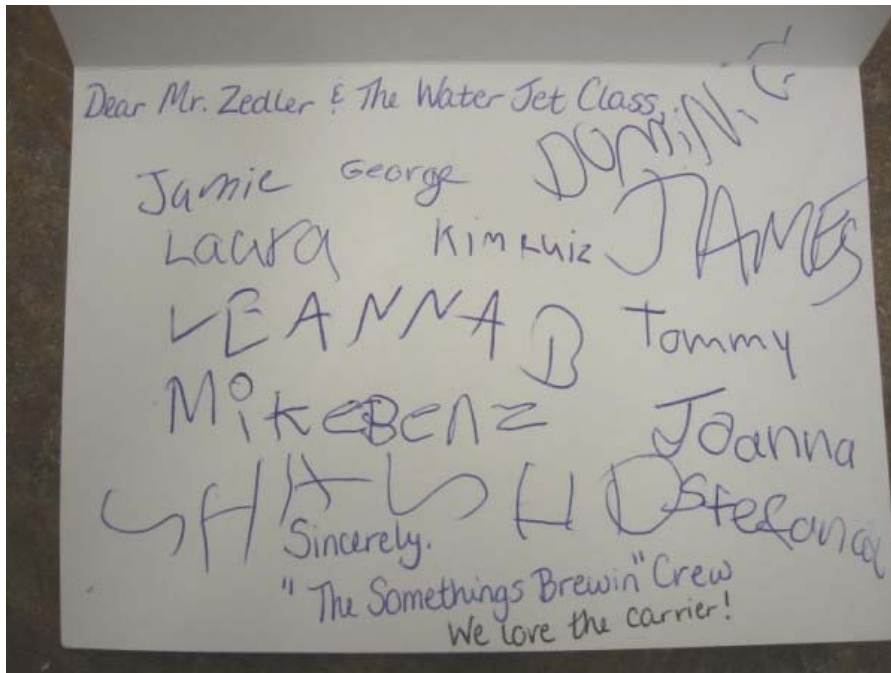 Dear Mr. Zedler & The Water Jet Class,
Jamie George DOMiNiC
Laura Kim Ruiz JAMES
LEANNA B Tommy
MikeBenz Joanna
SHASHO Stefanca
Sincerely.
"The Somethings Brewin" Crew
We love the carrier!